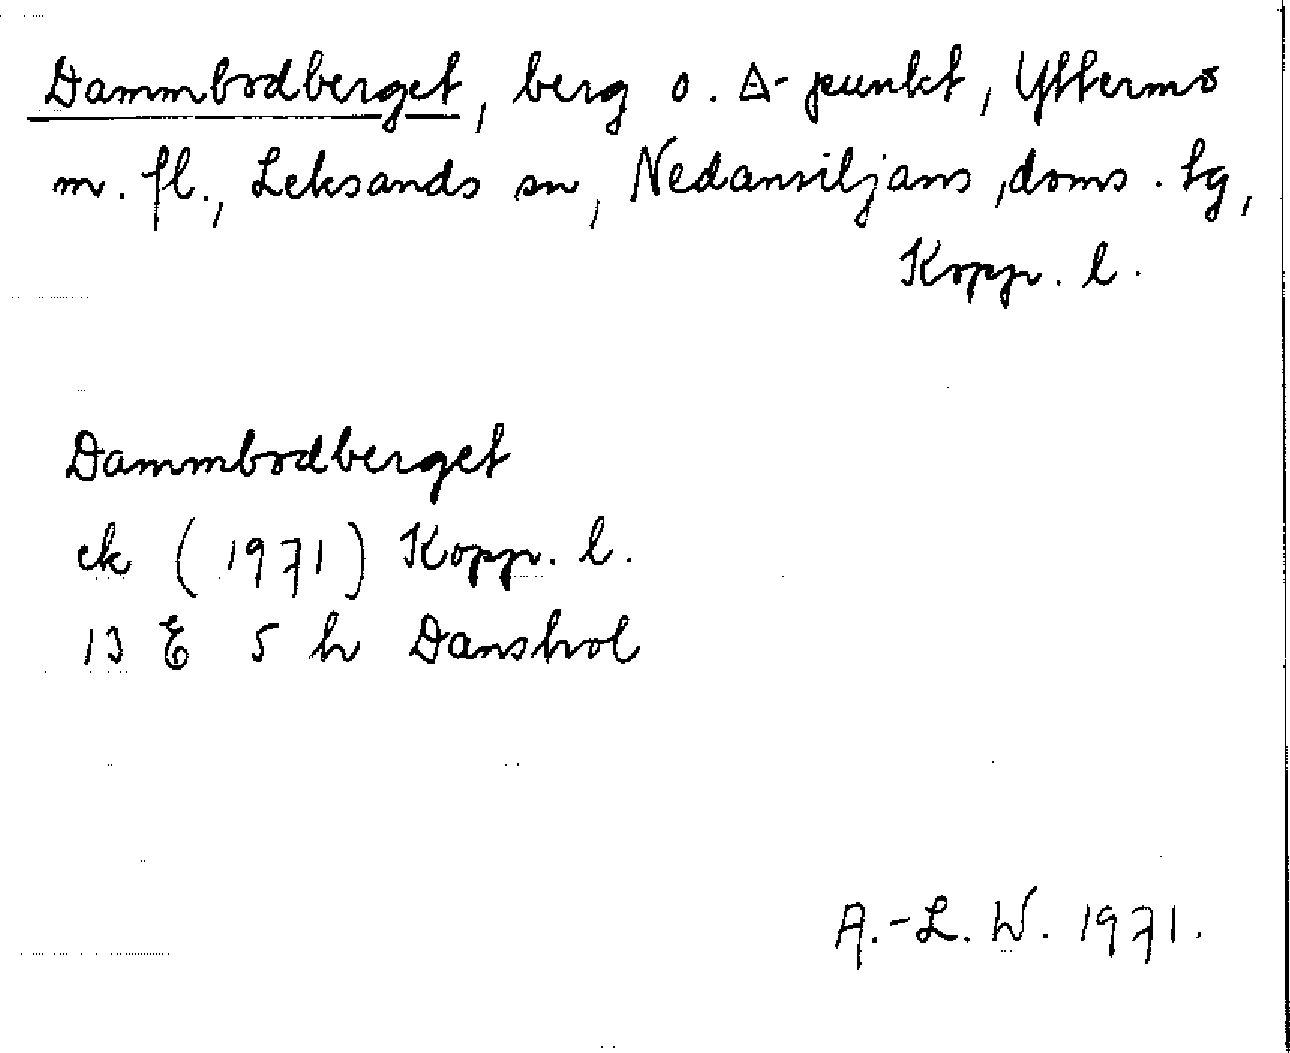 Dammbodberget, berg o. △-punkt, Yttermo
m. fl., Leksands sn, Nedansiljans doms. lg,
Kopp. l.
Dammbodberget
ek (1971) Kopp. l.
13 E 5 h Danshol
A.-L. W. 1971.